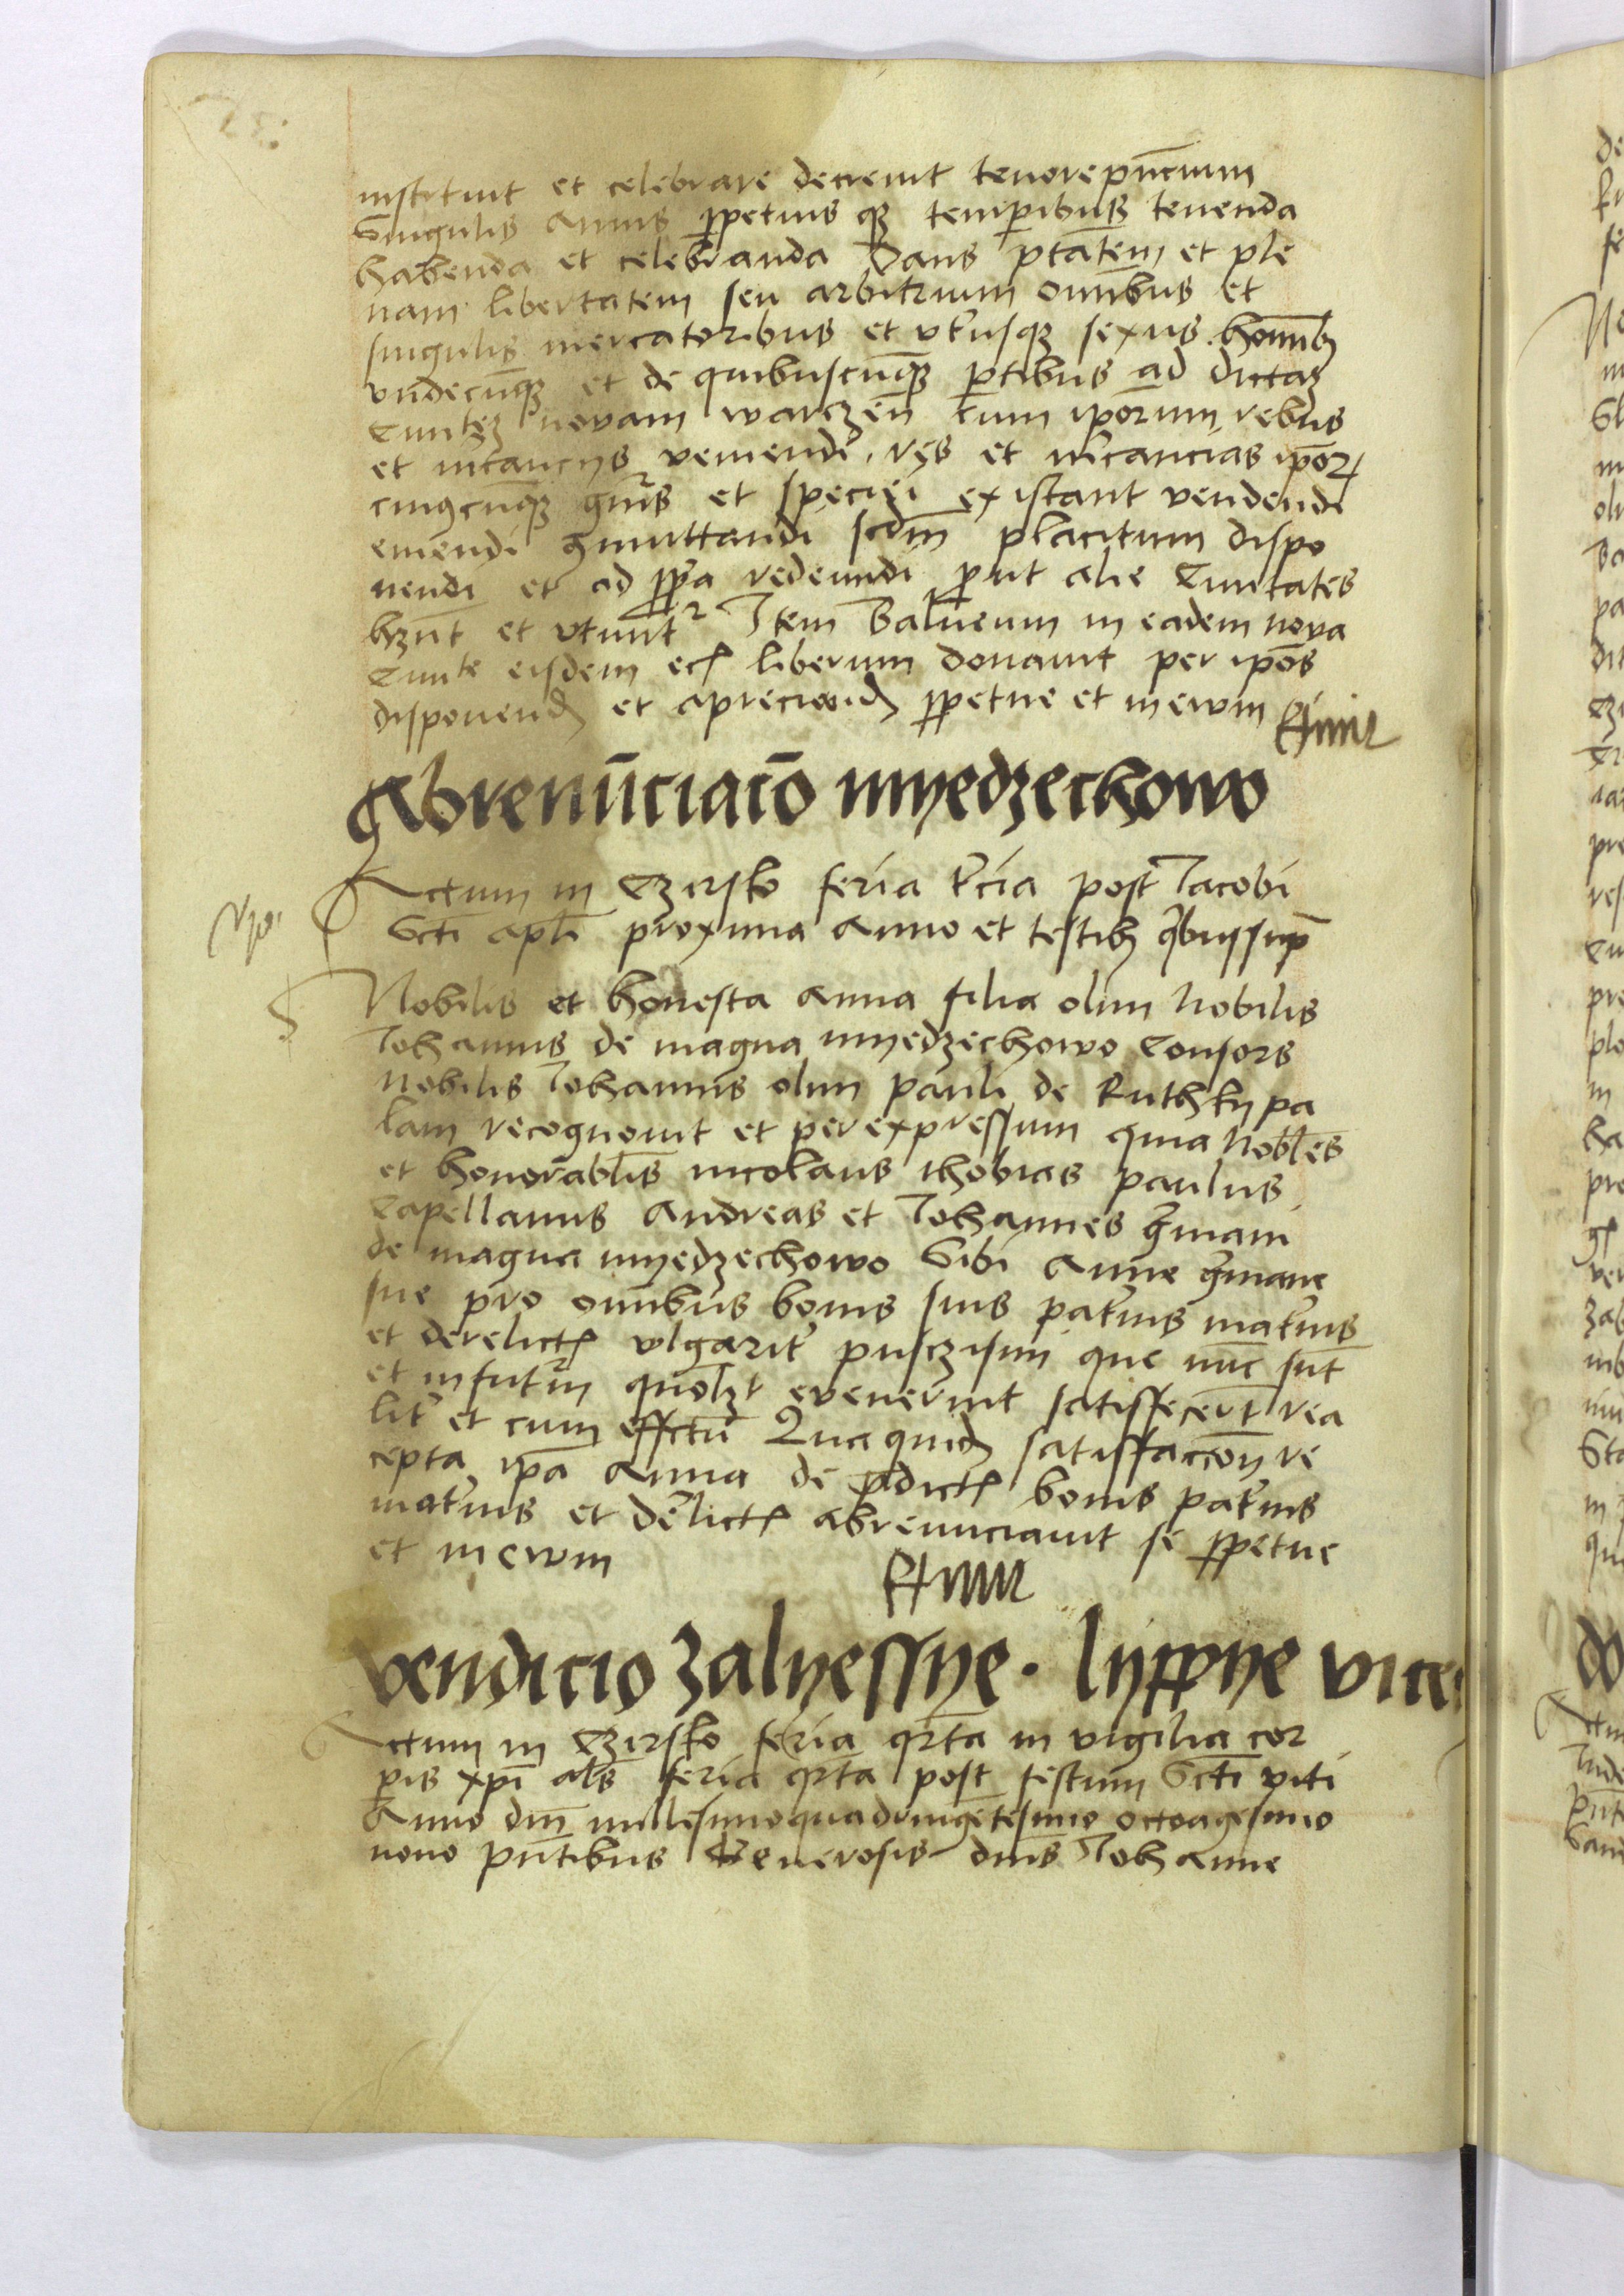 instituit et celebrare decrevit tenore pñcium
Singulis Annis ꝑpetuis qȝ temꝑibus tenenda
habenda et celebranda Dans ptãtem et ple
nam libertatem seu arbitrium omĩbus et
singulis mercatoribus et vtriusqȝ sexus homĩbȝ
vndecũqȝ et de quibuscũqȝ ꝑtibus ad dictaȝ
Ciuitȝ novam warczeñ cum ipõrum rebus
et mercancijs veniendi res et mercancias ipõrꝝ
cuiuscũqȝ gñris et speciei existant vendendi
emendi ꝯmuttandi scdm̃ placitum dispo
nendi et ad ꝓpria redeundi ꝓut alie Ciuitates
hȝnt et vtuntr Item Balneum in eadem nova
Ciuite eisdem liberum donauit per ipõs
disponend et apreciand ꝑpetue et in ewm
Abrenũciacõ myedzechowo
Actum in Czirsko feria tercia post Jacobi
Scti apli proxima Anno et testibȝ qbus supra
Nobilis et honesta Anna filia olim Nobilis
Johannis de magna myedzechowo Consors
Nobilis Johannis olim Pauli de Ruthky pa
lam recognovit et per expressum quia Nobles
et honorabls nicolaus thobias paulus
Capellanus Andreas et Johannes germani
de magna myedzechowo Sibi Anne germane
sue pro omĩbus bonis suis paternis maternis
et derelictꝭ vlgariter pusczisni que nũc sũt
et in futurm quolȝt evenerint satisfecerũt rea
liter et cum effctu Qua quidȝ satisfaccõn re
cepta ipã Anna de pdictꝭ bonis paternis
maternis et derelictꝭ abrenunciauit se ꝑpetue
et in ewm
Vendicio zalyessye · lyppye vice
Actum in Czirsko feria qrta in vigilia cor
ꝑis xpĩ als feria qrta post festum Scti viti
Anno dm̃ millesimo quadringẽtesimo octoagesimo
nono pñtibus Generosis dnĩs Johanne